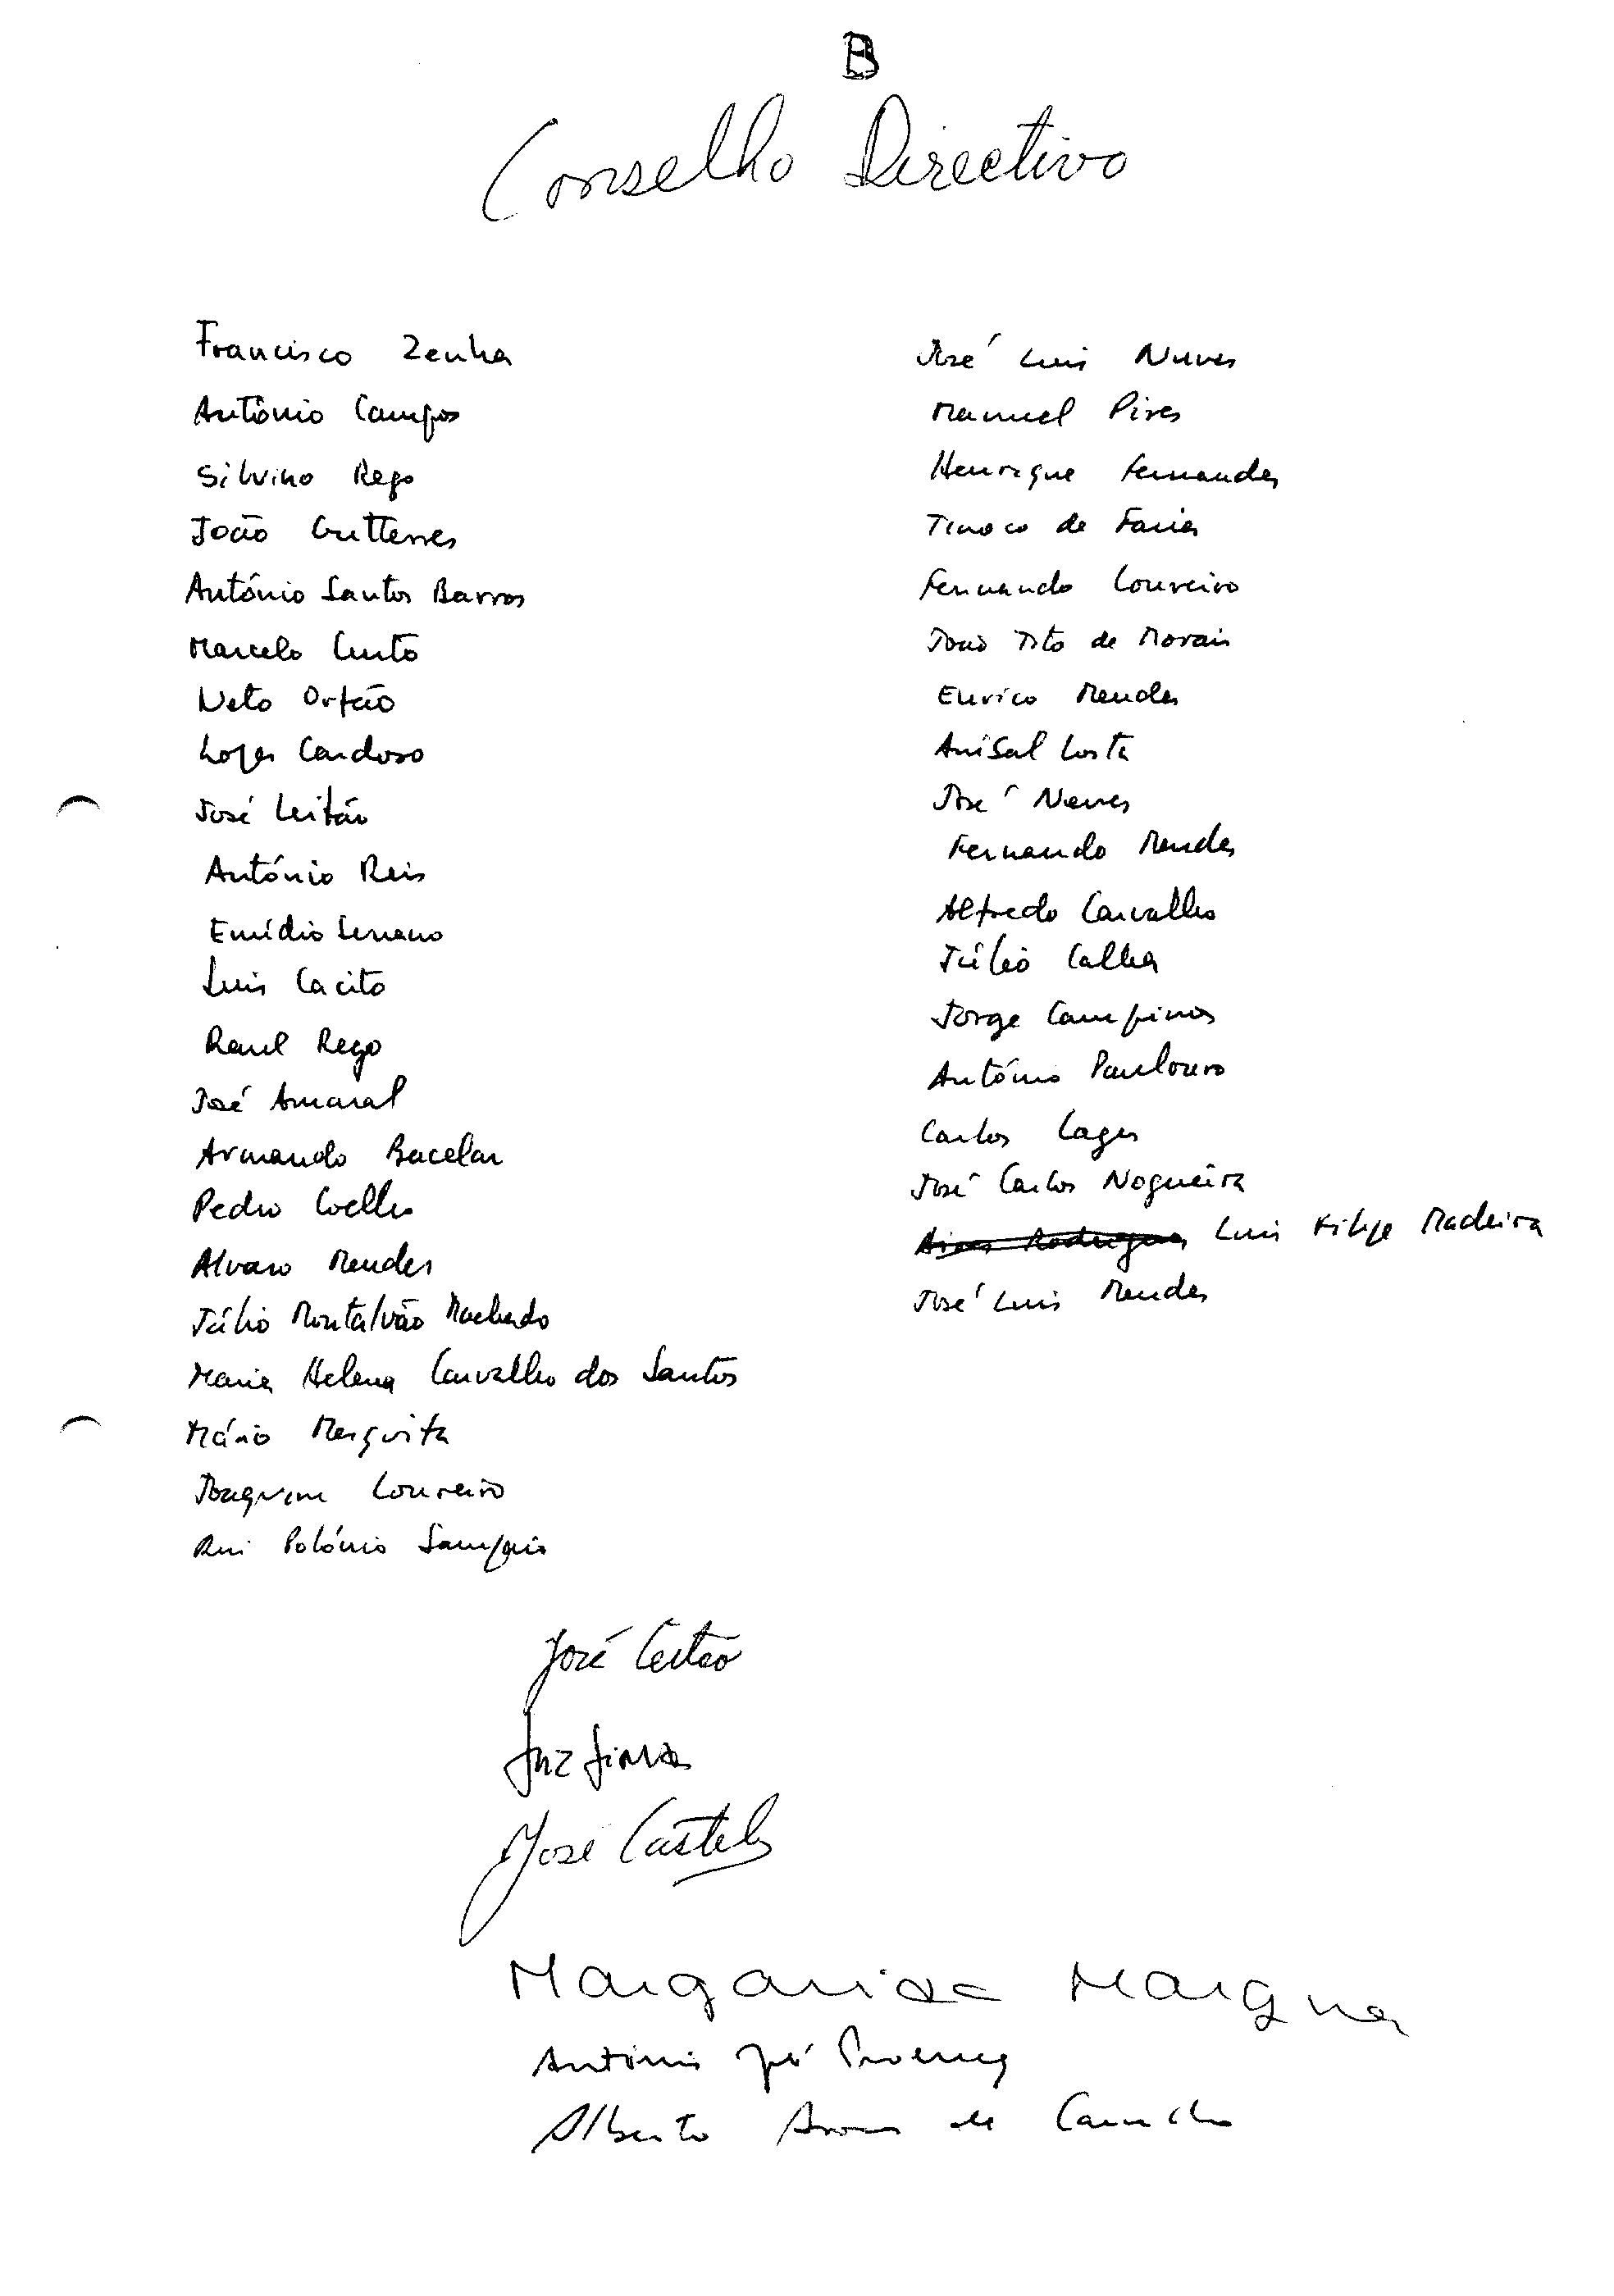 B
Conselho Directivo
Francisco Zenha
António Campos
Silvino Rego
João Gutterres
António Santos Barros
Marcelo Curto
Neto Orfão
Lopes Cardoso
José Leitão
António Reis
Emídio Serrano
Luis Cacito
Raul Rego
José Amaral
Armando Bacelar
Pedro Coelho
Alvaro Mendes
Júlio Montalvão Machado
Maria Helena Carvalho dos Santos
Mário Mesquita
Joaquim Loureiro
Rui Polónio Sampaio
José Luis Nunes
Manuel Pires
Henrique Fernandes
Tinoco de Faria
Fernando Loureiro
João Tito de Morais
Eurico Mendes
Anibal Costa
José Neves
Fernando Mendes
Alfredo Carvalho
Júlio Calha
Jorge Campinos
António Paulouro
Carlos Lages
José Carlos Nogueira
Aires Rodrigues Luis Filipe Madeira
José Luis Mendes
José Leitão
José Castelo
Margarida Marques
António José Proença
Alberto de